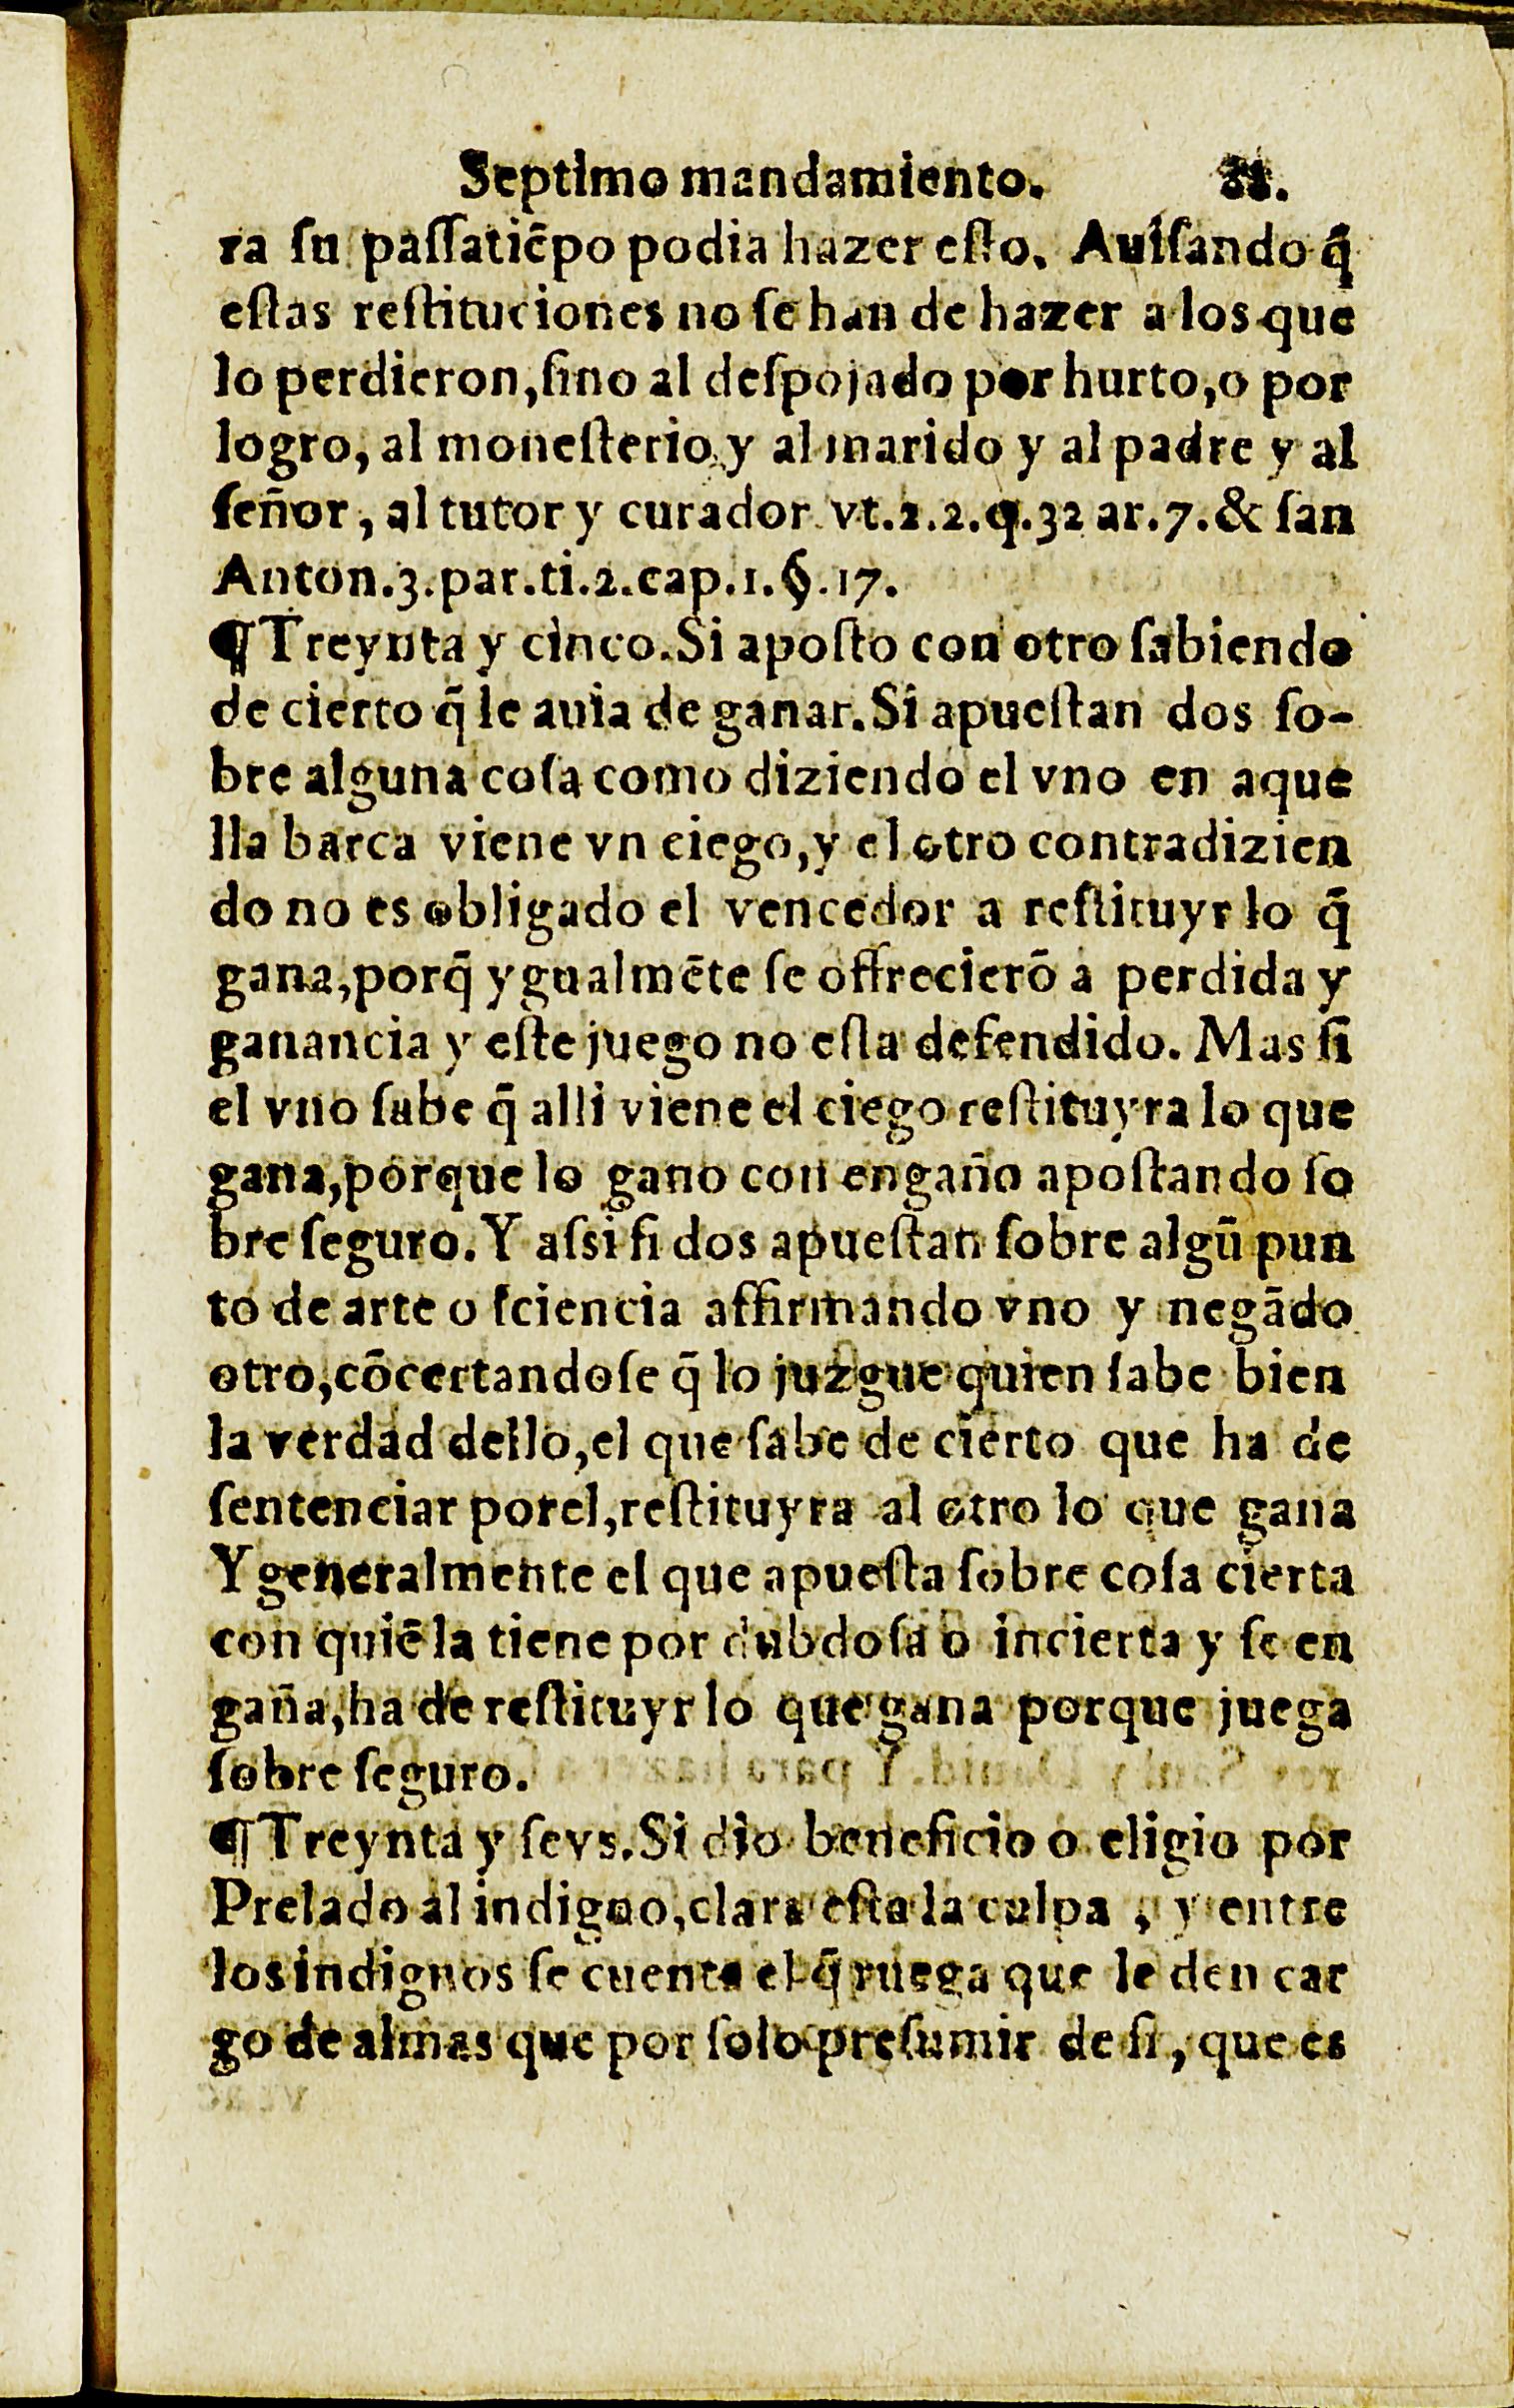 Septimo mandamiento.
ra ſu paſſatiẽpo podia hazer eſto. Auiſando q̃
eſtas reſtituciones no ſe han de hazer a los que
lo perdieron,ſino al deſpojado por hurto,o por
logro, al moneſterio y al marido y al padre y al
ſeñor, al tutor y curador vt.2.2.q.32 ar.7.& ſan
Anton.3.par.ti.2.cap.1.§.17.
¶ Treynta y cinco.Si apoſto con otro ſabiendo
de cierto q̃ le auia de ganar.Si apueſtan dos ſo-
bre alguna coſa como diziendo el vno en aque
lla barca viene vn ciego,y el otro contradizien
do no es obligado el vencedor a reſtituyr lo q̃
gana,porq̃ ygualmẽte ſe offrecierõ a perdida y
ganancia y eſte juego no eſta defendido. Mas ſi
el vno ſabe q̃ alli viene el ciego reſtituyra lo que
gana,porque lo gano con engaño apoſtando ſo
bre ſeguro.Y aſsi ſi dos apueſtan ſobre algũ pun
to de arte o ſciencia affirmando vno y negãdo
otro,cõcertandoſe q̃ lo juzgue quien ſabe bien
la verdad dello,el que ſabe de cierto que ha de
ſentenciar porel,reſtituyra al otro lo que gana
Y generalmente el que apueſta ſobre coſa cierta
con quiẽ la tiene por dubdoſa o incierta y ſe en
gaña,ha de reſtituyr lo que gana porque juega
ſobre ſeguro.
¶ Treynta y ſeys.Si dio beneficio o eligio por
Prelado al indigno,clara eſta la culpa , y entre
los indignos ſe cuenta el q̃ ruega que le den car
go de almas que por ſolo preſumir de ſi, que es